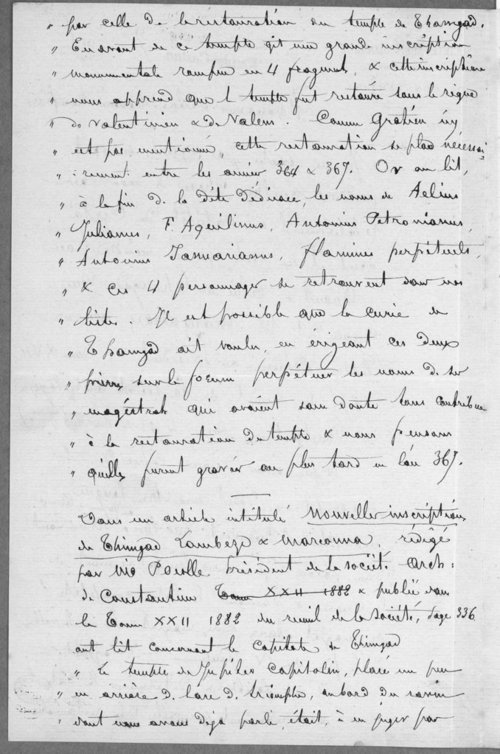 " par celle de la restauration du temple de Thamgad.
" En avant de ce temple gît une grande inscription
" monumentale rompue en 4 fragments, & cette inscription
" nous apprend que le temple fut restauré sous le règne
" de Valentinien & de Valens. Comme Gratien n'y
" est pas mentionné, cette restauration se place nécessai
" rement entre les années 364 & 367. Or on lit,
" à la fin de la dite dédicace, les noms de Aelius
" Julianus, F. Aquilinus, Antonius Petronianus,
" Antonius Januarianus, flamines perpétuels,
" & ces 4 personnages se retrouvent dans nos
" listes. Il est possible que la curie de
" Thamgad ait voulu, en érigeant ces deux
" pierres sur le forum perpétuer les noms de ses
" magistrats qui avaient sans doute tous contribué
" à la restauration du temple & nous pensons
" qu'elles furent gravées au plus tard en l'an 367.
Dans un article intitulé Nouvelles inscriptions
de Thimgad Lambèze & Marcouna, rédigé
par Mr Poulle président de la société Arch:
de Constantine Tome XXII 1882 & publié dans
le Tome XXII 1882 du recueil de la Société, page 336
on lit concernant le capitole de Thimgad
" Le temple de Jupiter Capitolin, placé un peu
" en arrière de l'arc de triomphe, au bord du ravin
" dont nous avons déjà parlé, était, à en juger par